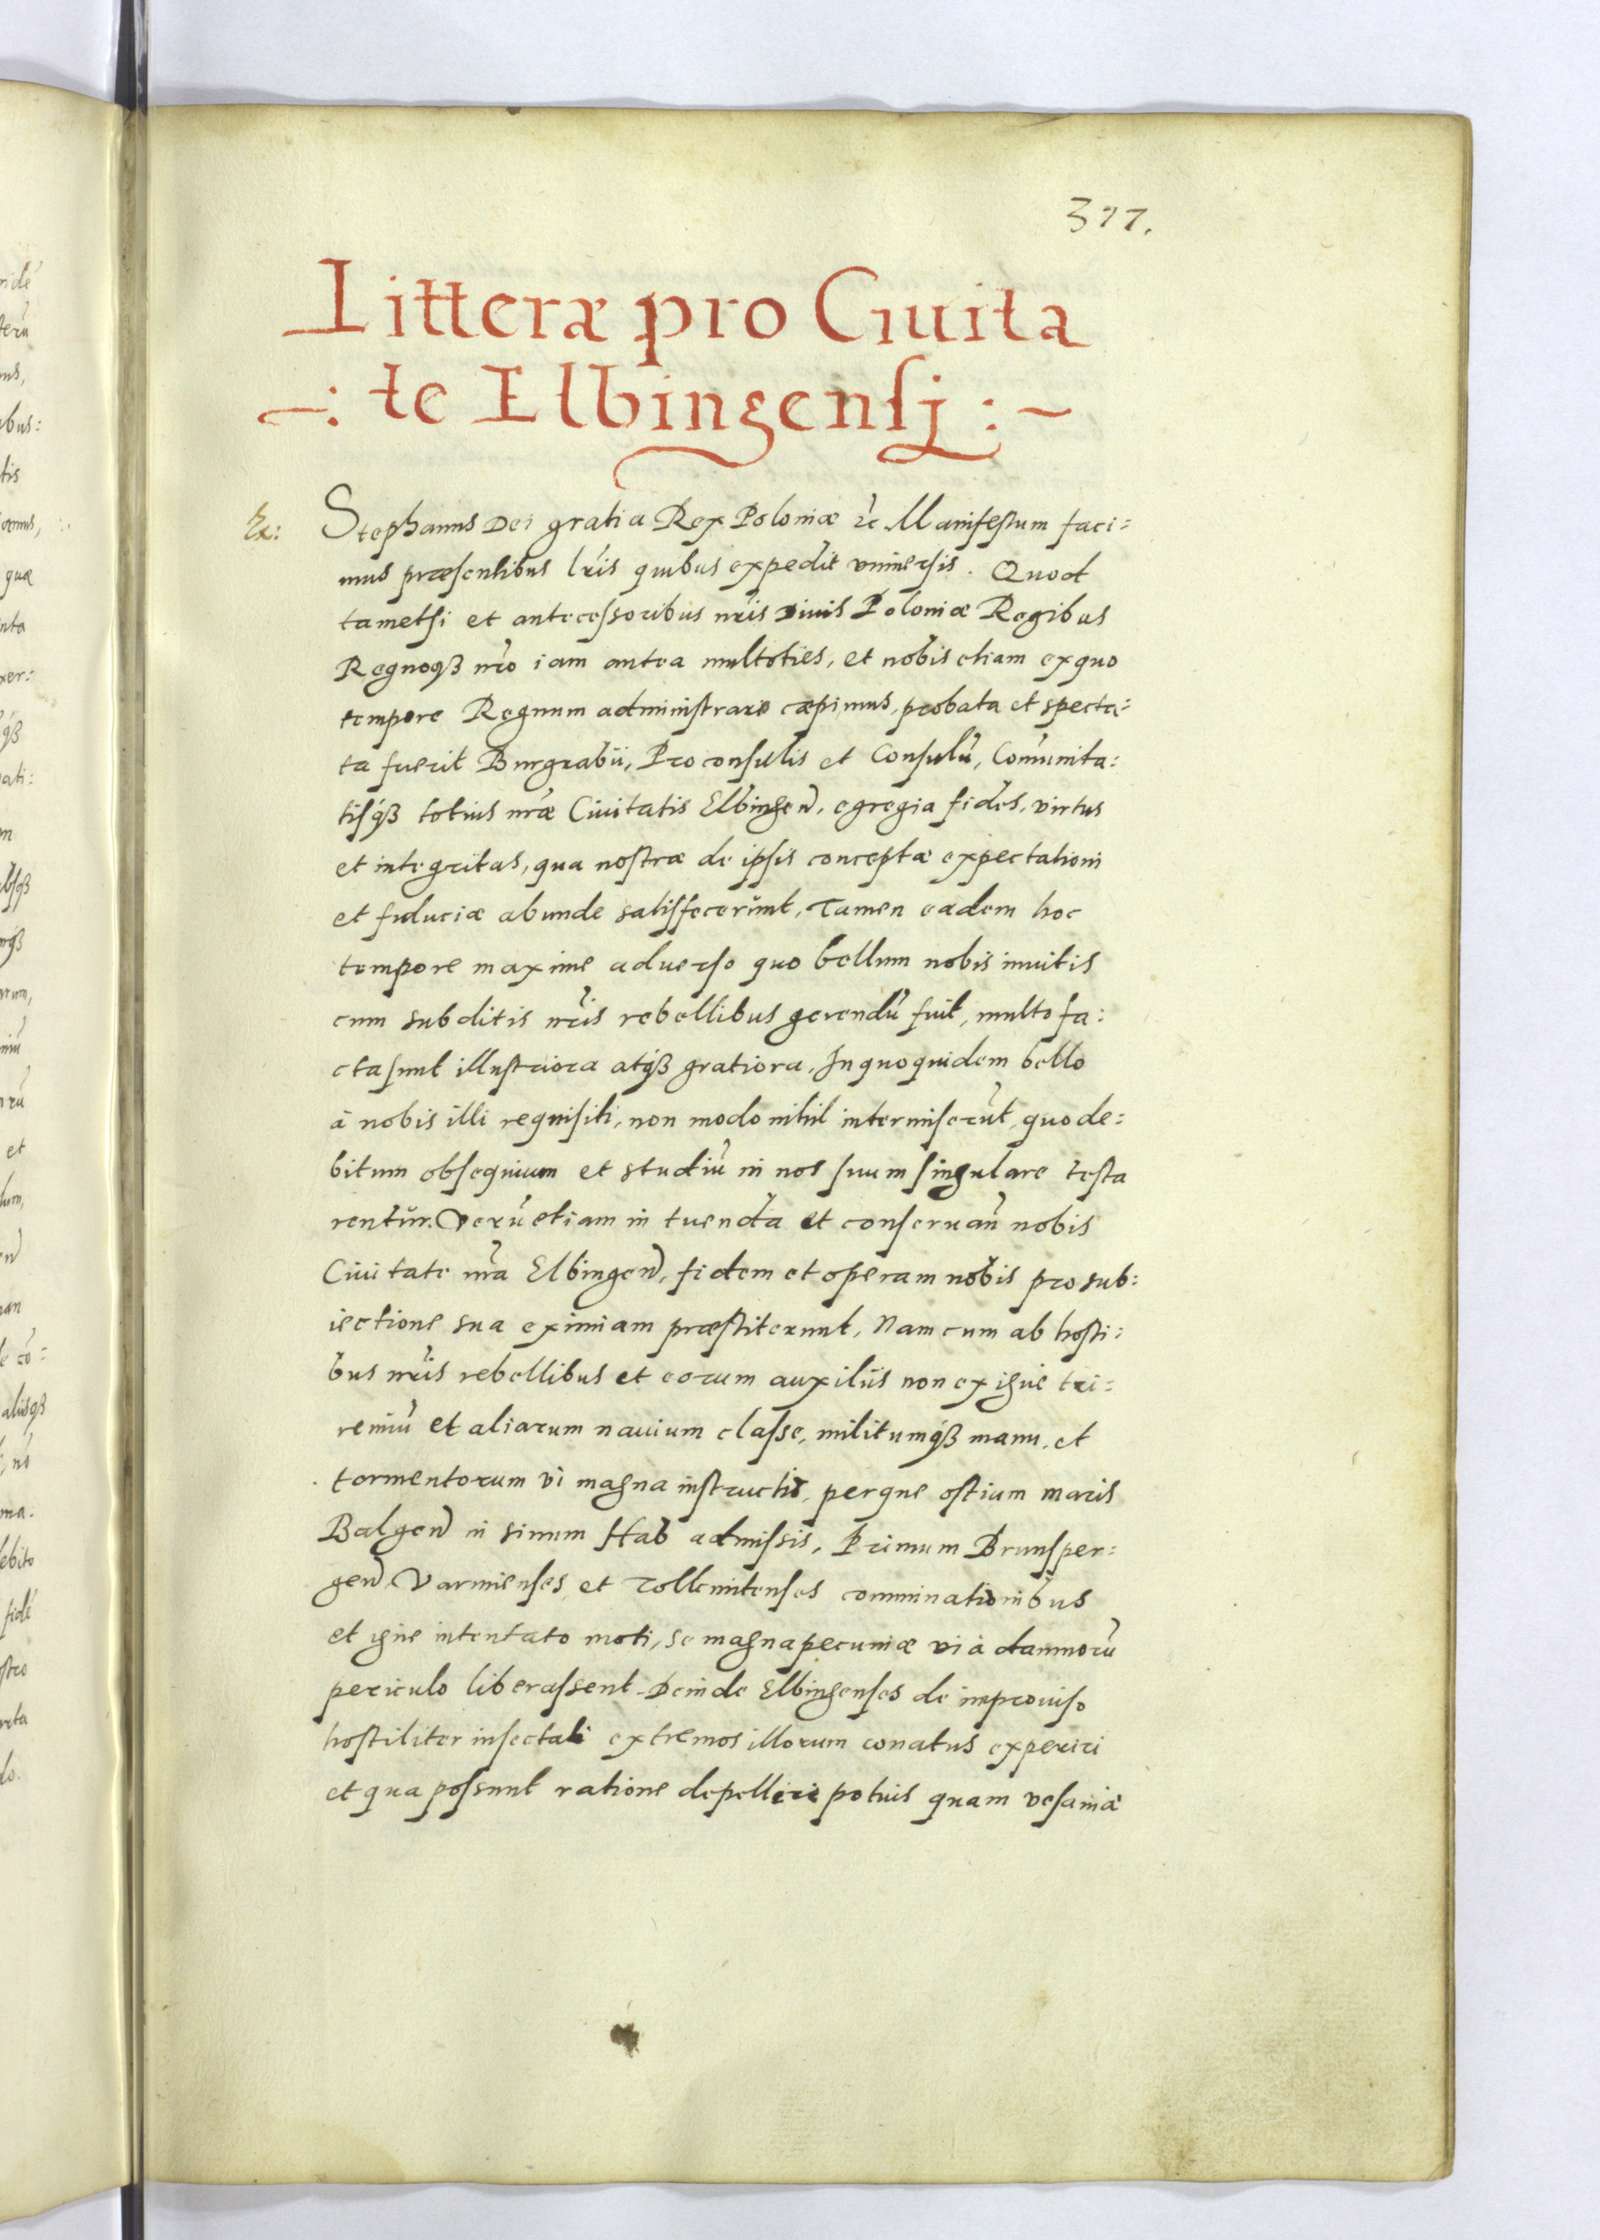 377.
Litteræ pro Ciuita
-: te Elbingensj :~
Stephanus Dei gratia Rex Poloniæ &c Manifestum faci:
mus præsentibus lris quibus expedit vniuersis. Quod
tametsi et antecessoribus nris Diuis Poloniæ Regibus
Regnoqꝫ nro iam antea multoties, et nobis etiam ex quo
tempore Regnum administrare cæpimus, probata et specta:
ta fuerit Burgrabii, Proconsulis et Consulū, Comūnita:
tisqꝫ totius nræ Ciuitatis Elbingeñ, egregia fides, virtus
et integritas, qua nostræ de ipsis conceptæ expectationi
et fiduciæ abunde satisfecerūnt, Tamen eadem hoc
tempore maxime aduerso quo bellum nobis inuitis
cum subditis nris rebellibus gerendū fuit, multo fa:
cta sunt illustriora atqꝫ gratiora. In quo quidem bello
à nobis illi requisiti, non modo nihil intermiserūt, quo de:
bitum obsequium et studiū in nos suum singulare testa
rentur. Verū etiam in tuenda et conseruañ nobis
Ciuitate nra Elbingeñ, fidem et operam nobis pro sub:
iectione sua eximiam præstiterunt, Nam cum ab hosti:
bus nris rebellibus et eorum auxiliis non exigue tri:
remiū et aliarum nauium classe, militumqꝫ manu, et
tormentorum vi magna instructis, perque ostium maris
Balgeñ in sinum Hab admissis, Primum Brunsper:
geñ Varmienses et Tolkemitenses comminationibus
et igne intentato moti, se magna pecuniæ vi à damnorū
periculo liberassent. Deinde Elbingenses de improuiso
hostiliter insectati extremos illorum conatus experiri
et qua possunt ratione depellere potuis quam vesaniæ